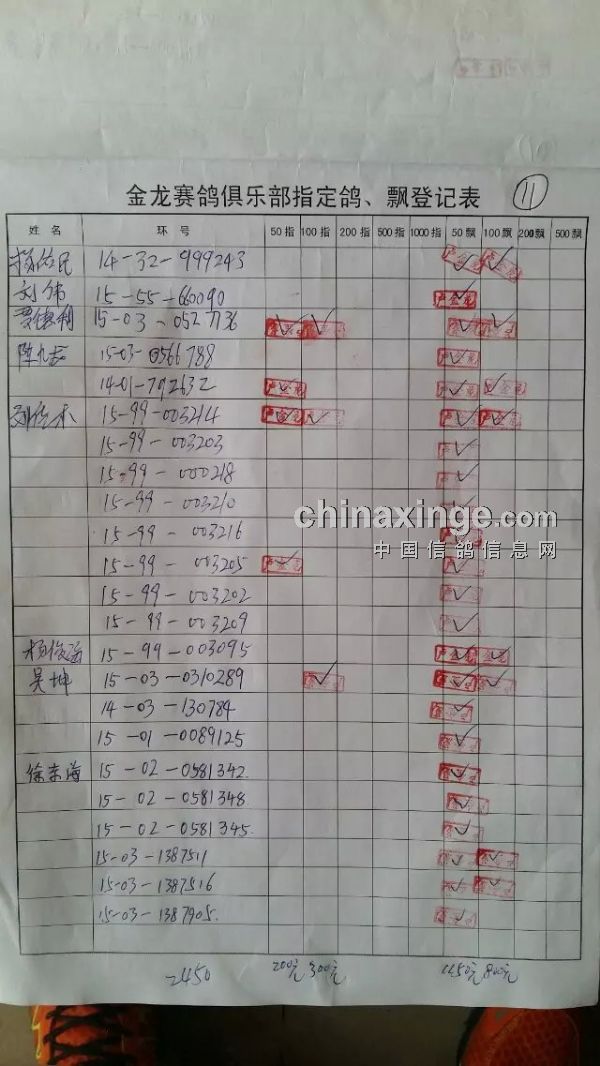 金龙赛鸽俱乐部指定鸽、飘登记表 11
姓名 环号 50指 100指 200指 500指 1000指 50飘 100飘 200飘 500飘
14-32-999243
刘伟 15-55-660090
15-03-0527736
15-03-0566788
14-01-792632
15-99-003214
15-99-003203
15-99-000218
15-99-003210
chinaxinge.com
15-99-003216
中国信鸽信息网
15-99-003205
15-99-003202
15-99-003209
15-99-003095
吴坤 15-03-0310289
14-03-130784
15-01-0089125
徐东海 15-02-0581342
15-02-0581348
15-02-0581345
15-03-1387511
15-03-1387516
15-03-1387905
2450 200元 300元 1150元 800元